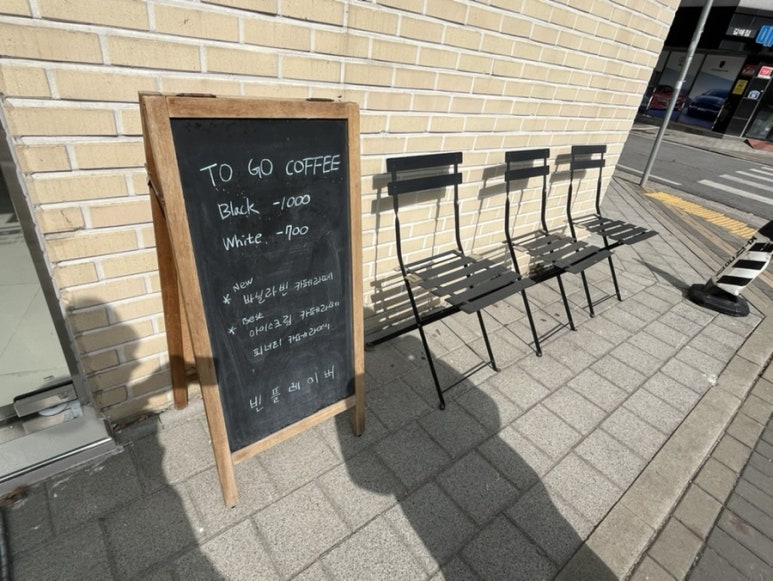 TO GO COFFEE
Black -1000
White. -700
New
* 바닐라빈 카페라떼
* Best
아이스크림 카페라떼
피너티 카페라떼
빈플레이버